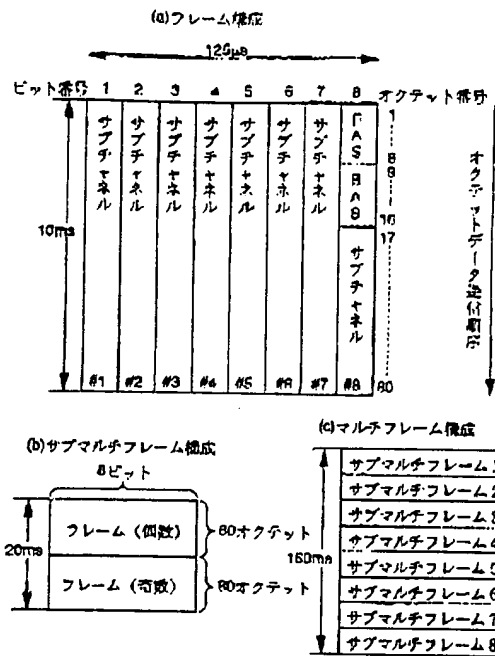 (a)フレーム構成
125μs
ビット番号 1 2 3 4 5 6 7 8 オクテット番号
サブチャネル
サブチャネル
サブチャネル
サブチャネル
サブチャネル
サブチャネル
サブチャネル
FAS
BAS
サブチャネル
1
8
9
16
17
80
オクテットデータ送付順序
10ms
#1 #2 #3 #4 #5 #6 #7 #8
(b)サブマルチフレーム構成
8ビット
20ms
フレーム(偶数)
80オクテット
フレーム(奇数)
80オクテット
(c)マルチフレーム構成
160ms
サブマルチフレーム1
サブマルチフレーム2
サブマルチフレーム3
サブマルチフレーム4
サブマルチフレーム5
サブマルチフレーム6
サブマルチフレーム7
サブマルチフレーム8